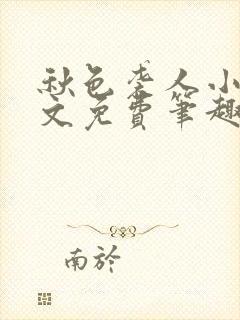 秋色誊人小
文免費筆趣
南於